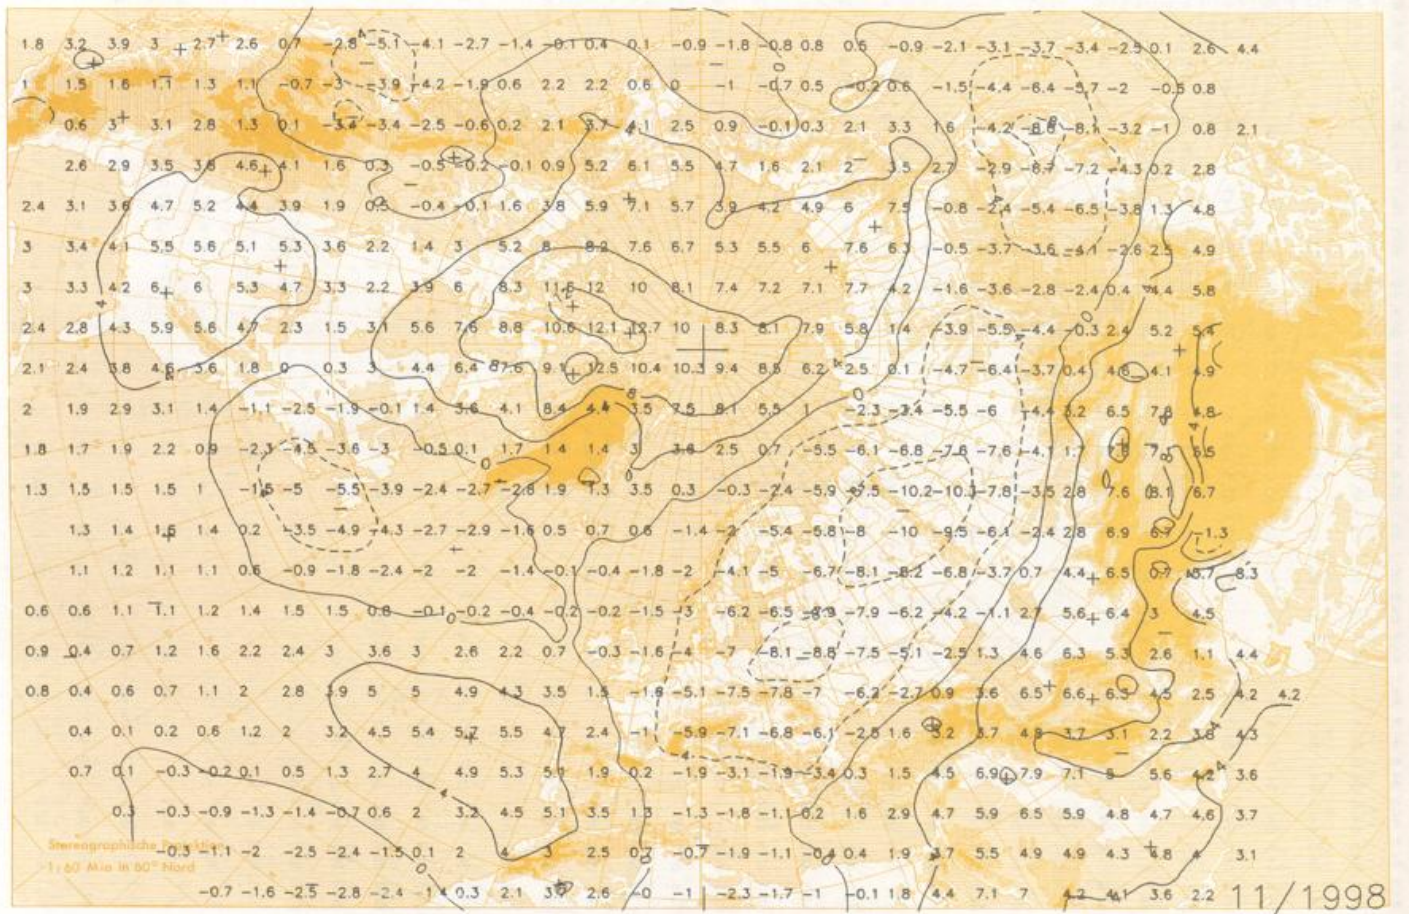 1.8 3.2 3.9 3 2.7 2.6 0.7 -2.8 -5.1 -4.1 -2.7 -1.4 -0.1 0.4 0.1 -0.9 -1.8 -0.8 0.8 0.6 -0.9 -2.1 -3.1 -3.7 -3.4 -2.5 0.1 2.6 4.4
1 1.5 1.6 1.1 1.3 1.1 -0.7 -3 -3.9 -4.2 -1.9 0.6 2.2 2.2 0.6 0 -1 -0.7 0.5 -0.2 0.6 -1.5 -4.4 -6.4 -5.7 -2 -0.5 0.8
0.6 3 3.1 2.8 1.3 0.1 -3.4 -3.4 -2.5 -0.6 0.2 2.1 3.7 4.1 2.5 0.9 -0.1 0.3 2.1 3.3 1.6 -4.2 -8.1 -3.2 -1 0.8 2.1
2.6 2.9 3.5 3.8 4.6 4.1 1.6 0.3 -0.5 -0.2 -0.1 0.9 5.2 6.1 5.5 4.7 1.6 2.1 2 3.5 2.7 -2.9 -6.7 -7.2 -4.3 0.2 2.8
2.4 3.1 3.6 4.7 5.2 4.4 3.9 1.9 0.5 -0.4 -0.1 1.6 3.8 5.9 7.1 5.7 3.9 4.2 4.9 6 7.5 -0.8 -2.4 -5.4 -6.5 -3.8 1.3 4.8
3 3.4 4.1 5.5 5.6 5.1 5.3 3.6 2.2 1.4 3 5.2 8 8.2 7.6 6.7 5.3 5.5 6 7.6 6.3 -0.5 -3.7 -3.6 -4.1 -2.6 2.5 4.9
3 3.3 4.2 6 6 5.3 4.7 3.3 2.2 3.9 6 8.3 11.6 12 10 8.1 7.4 7.2 7.1 7.7 4.2 -1.6 -3.6 -2.8 -2.4 0.4 4.4 5.8
2.4 2.8 4.3 5.9 5.6 4.7 2.3 1.5 3.1 5.6 7.6 8.8 10.6 12.1 12.7 10 8.3 8.1 7.9 5.8 1.4 -3.9 -5.5 -4.4 -0.3 2.4 5.2 5.4
2.1 2.4 3.8 4.6 3.6 1.8 0 0.3 3 4.4 6.4 7.6 9.1 12.5 10.4 10.3 9.4 8.5 6.2 2.5 0.1 -4.7 -6.4 -3.7 0.4 4.6 4.1 4.9
2 1.9 2.9 3.1 1.4 -1.1 -2.5 -1.9 -0.1 1.4 3.6 4.1 8.4 4.4 3.5 7.5 8.1 5.5 1 -2.3 -3.4 -5.5 -6 -4.4 3.2 6.5 7.8 4.8
1.8 1.7 1.9 2.2 0.9 -2.3 -4.5 -3.6 -3 -0.5 0.1 1.7 1.4 1.4 3 3.6 2.5 0.7 -5.5 -6.1 -6.8 -7.6 -7.6 -4.1 1.7 7.6 6.5
1.3 1.5 1.5 1.5 1 -1.5 -5 -5.5 -3.9 -2.4 -2.7 -2.6 1.9 1.3 3.5 0.3 -0.3 -2.4 -5.9 -7.5 -10.2 -10.3 -7.8 -3.5 2.8 7.6 8.1 6.7
1.3 1.4 1.6 1.4 0.2 -3.5 -4.9 -4.3 -2.7 -2.9 -1.6 0.5 0.7 0.6 -1.4 -2 -5.4 -5.8 -8 -10 -9.5 -6.1 -2.4 2.8 6.9 6.7 -1.3
1.1 1.2 1.1 1.1 0.6 -0.9 -1.8 -2.4 -2 -2 -1.4 -0.1 -0.4 -1.8 -2 -4.1 -5 -6.7 -8.1 -8.2 -6.8 -3.7 0.7 4.4 6.5 0.7 5.7 8.3
0.6 0.6 1.1 1.1 1.2 1.4 1.5 1.5 0.8 -0.1 -0.2 -0.4 -0.2 -0.2 -1.5 -3 -6.2 -6.5 -7.9 -6.2 -4.2 -1.1 2.7 5.6 6.4 3 4.5
0.9 0.4 0.7 1.2 1.6 2.2 2.4 3 3.6 3 2.6 2.2 0.7 -0.3 -1.6 -4 -7 -8.1 -8.8 -7.5 -5.1 -2.5 1.3 4.6 6.3 5.3 2.6 1.1 4.4
0.8 0.4 0.6 0.7 1.1 2 2.8 3.9 5 5 4.9 4.3 3.5 1.5 -1.8 -5.1 -7.5 -7.8 -7 -6.2 -2.7 0.9 3.6 6.5 6.6 6.3 4.5 2.5 4.2 4.2
0.4 0.1 0.2 0.6 1.2 2 3.2 4.5 5.4 5.7 5.5 4.7 2.4 -1 -5.9 -7.1 -6.8 -6.1 -2.5 1.6 3.2 3.7 4.8 3.7 3.1 2.2 3.8 4.3
0.7 0.1 -0.3 -0.2 0.1 0.5 1.3 2.7 4 4.9 5.3 5.1 1.9 0.2 -1.9 -3.1 -1.9 -3.4 0.3 1.5 4.5 6.9 7.9 7.1 5 5.6 4.2 3.6
0.3 -0.3 -0.9 -1.3 -1.4 -0.7 0.6 2 3.2 4.5 5.1 3.5 1.3 -1.3 -1.8 -1.1 0.2 1.6 2.9 4.7 5.9 6.5 5.9 4.8 4.7 4.6 3.7
Stereographische Projektion
-0.3 -1.1 -2 -2.5 -2.4 -1.5 0.1 2 4 3 2.5 0.7 -0.7 -1.9 -1.1 -0.4 0.4 1.9 3.7 5.5 4.9 4.9 4.3 4.8 4 3.1
1:60 Mio in 60° Nord
-0.7 -1.6 -2.5 -2.8 -2.4 -1.4 0.3 2.1 3.7 2.6 -0 -1 -2.3 -1.7 -1 -0.1 1.8 4.4 7.1 7 4.2 4.1 3.6 2.2 11/1998